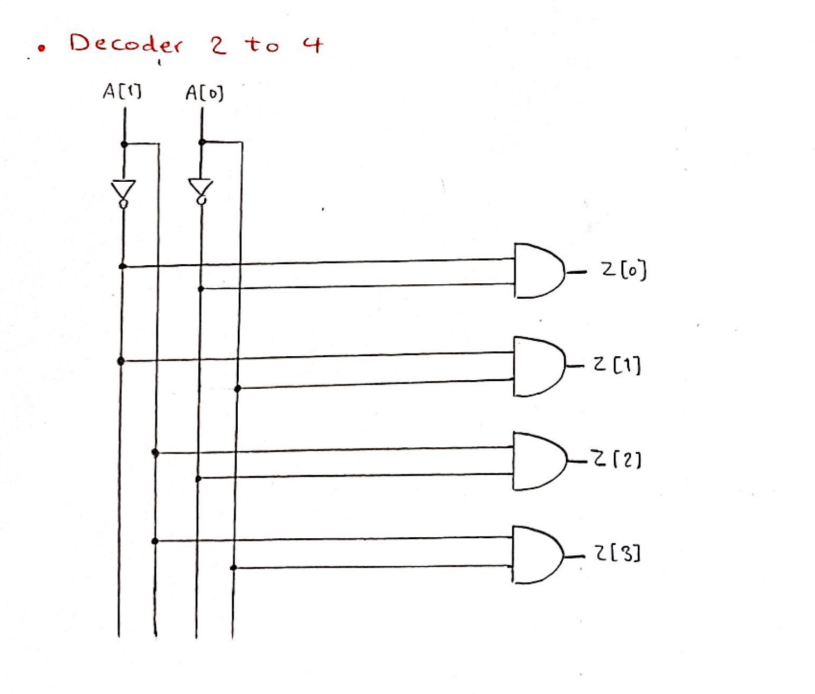 • Decoder 2 to 4
A[1] A[0]
Z[0]
Z[1]
Z[2]
Z[3]